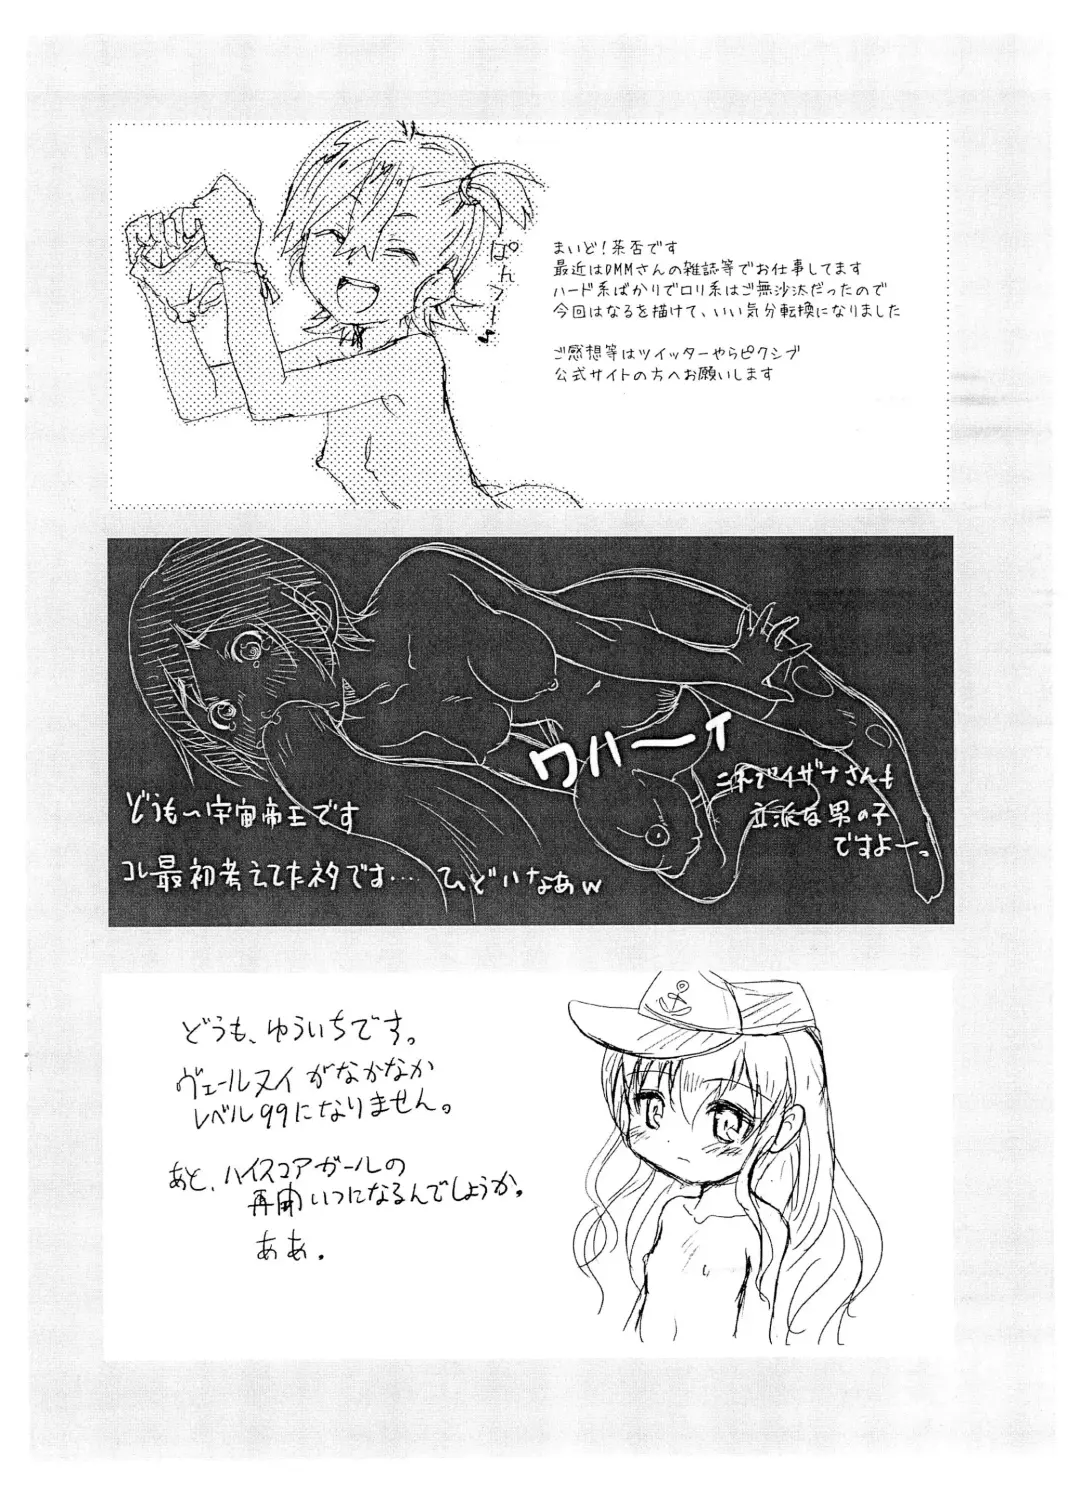 ぱんつー♪
まいど！茶否です
最近はDMMさんの雑誌等でお仕事してます
ハード系ばかりでロリ系はご無沙汰だったので
今回はなるを描けて、いい気分転換になりました
ご感想等はツイッターやらピクシブ
公式サイトの方へお願いします
ワハーイ
どうも〜宇宙帝王です
コレ最初考えてたネタです‥‥ ひどいなぁw
これでイザナさんも
立派な男の子
ですよー。
どうも、ゆういちです。
ヴェールヌイがなかなか
レベル99になりません。
あと、ハイスコアガールの
再開いつになるんでしょうか。
ああ。